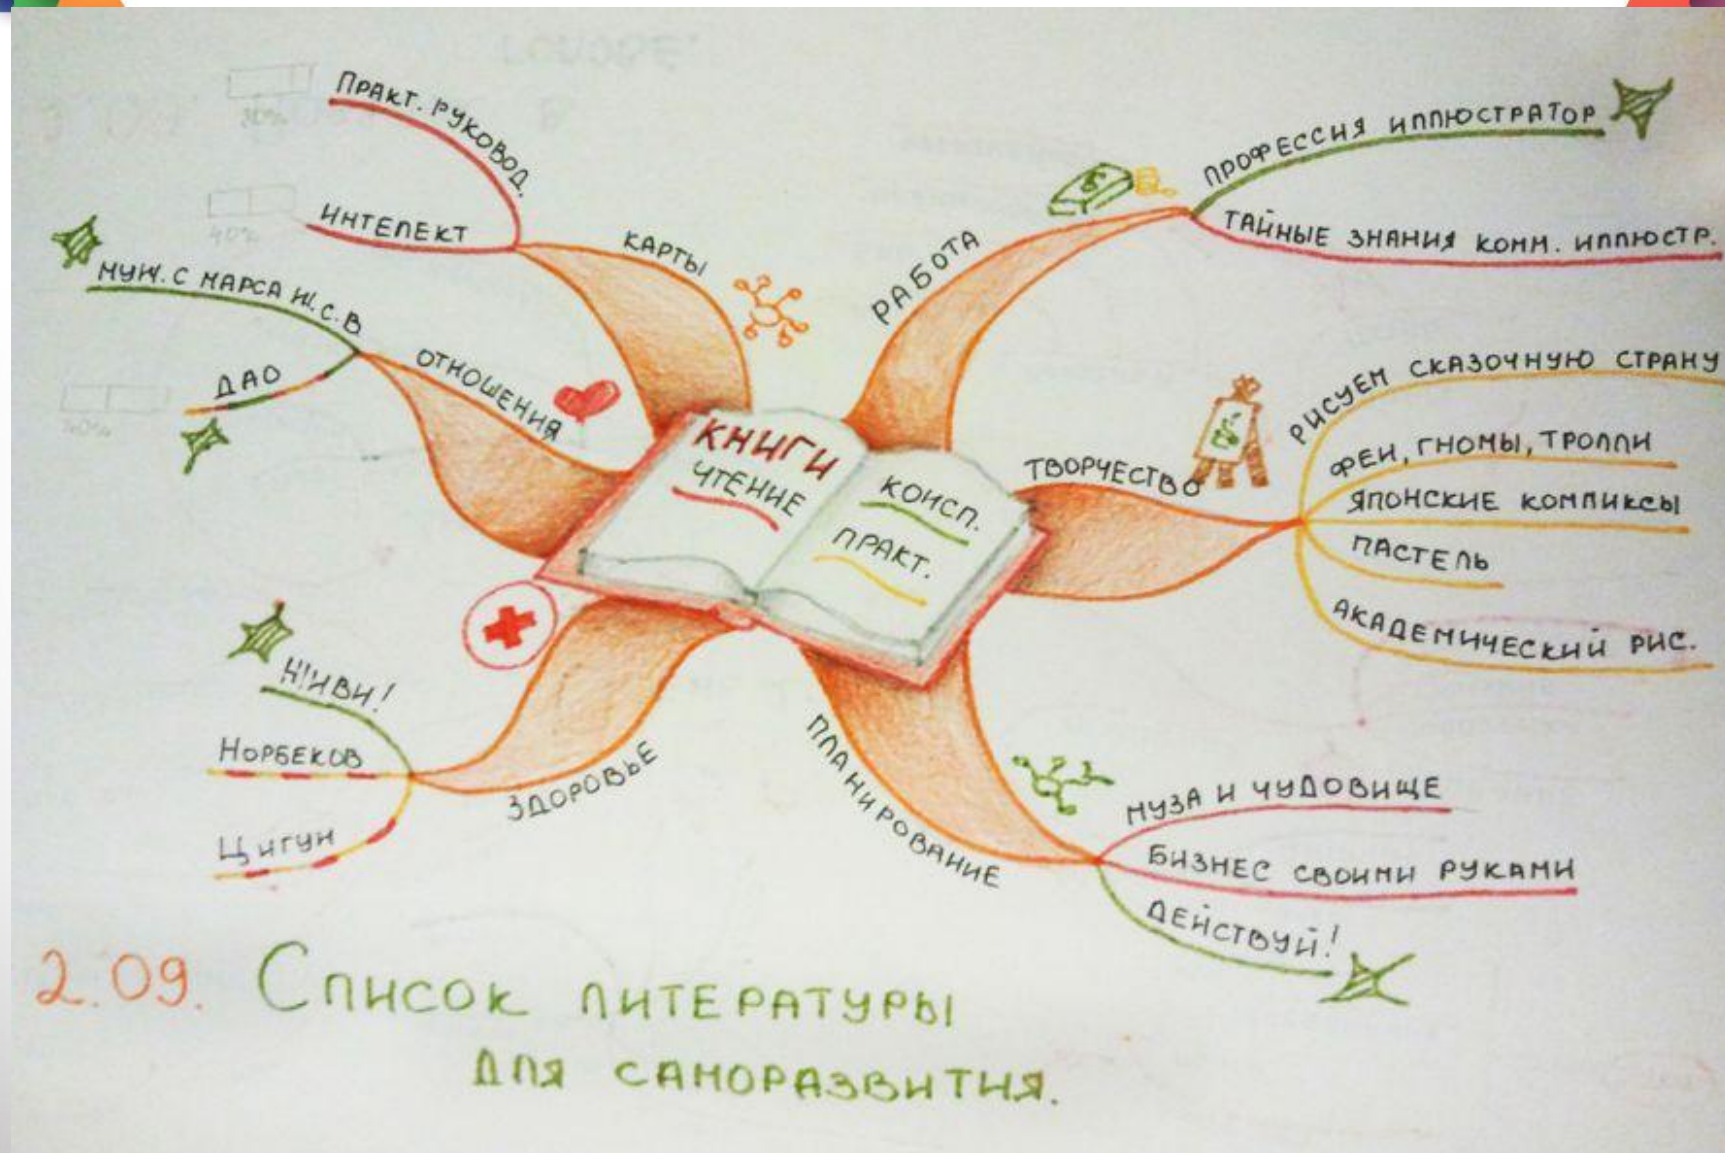 ПРАКТ. РУКОВОД.
ИНТЕЛЕКТ
КАРТЫ
МУЖ. С МАРСА Ж. С. В
ДАО
ОТНОШЕНИЯ
ЖИВИ!
НОРБЕКОВ
ЦИГУН
ЗДОРОВЬЕ
КНИГИ
ЧТЕНИЕ
КОНСП.
ПРАКТ.
РАБОТА
ПРОФЕССИЯ ИЛЛЮСТРАТОР
ТАЙНЫЕ ЗНАНИЯ КОММ. ИЛЛЮСТР.
ТВОРЧЕСТВО
РИСУЕМ СКАЗОЧНУЮ СТРАНУ
ФЕИ, ГНОМЫ, ТРОЛЛИ
ЯПОНСКИЕ КОМПИКСЫ
ПАСТЕЛЬ
АКАДЕМИЧЕСКИЙ РИС.
ПЛАНИРОВАНИЕ
МУЗА И ЧУДОВИЩЕ
БИЗНЕС СВОИМИ РУКАМИ
ДЕЙСТВУЙ!
2.09. СПИСОК ЛИТЕРАТУРЫ
ДЛЯ САМОРАЗВИТИЯ.